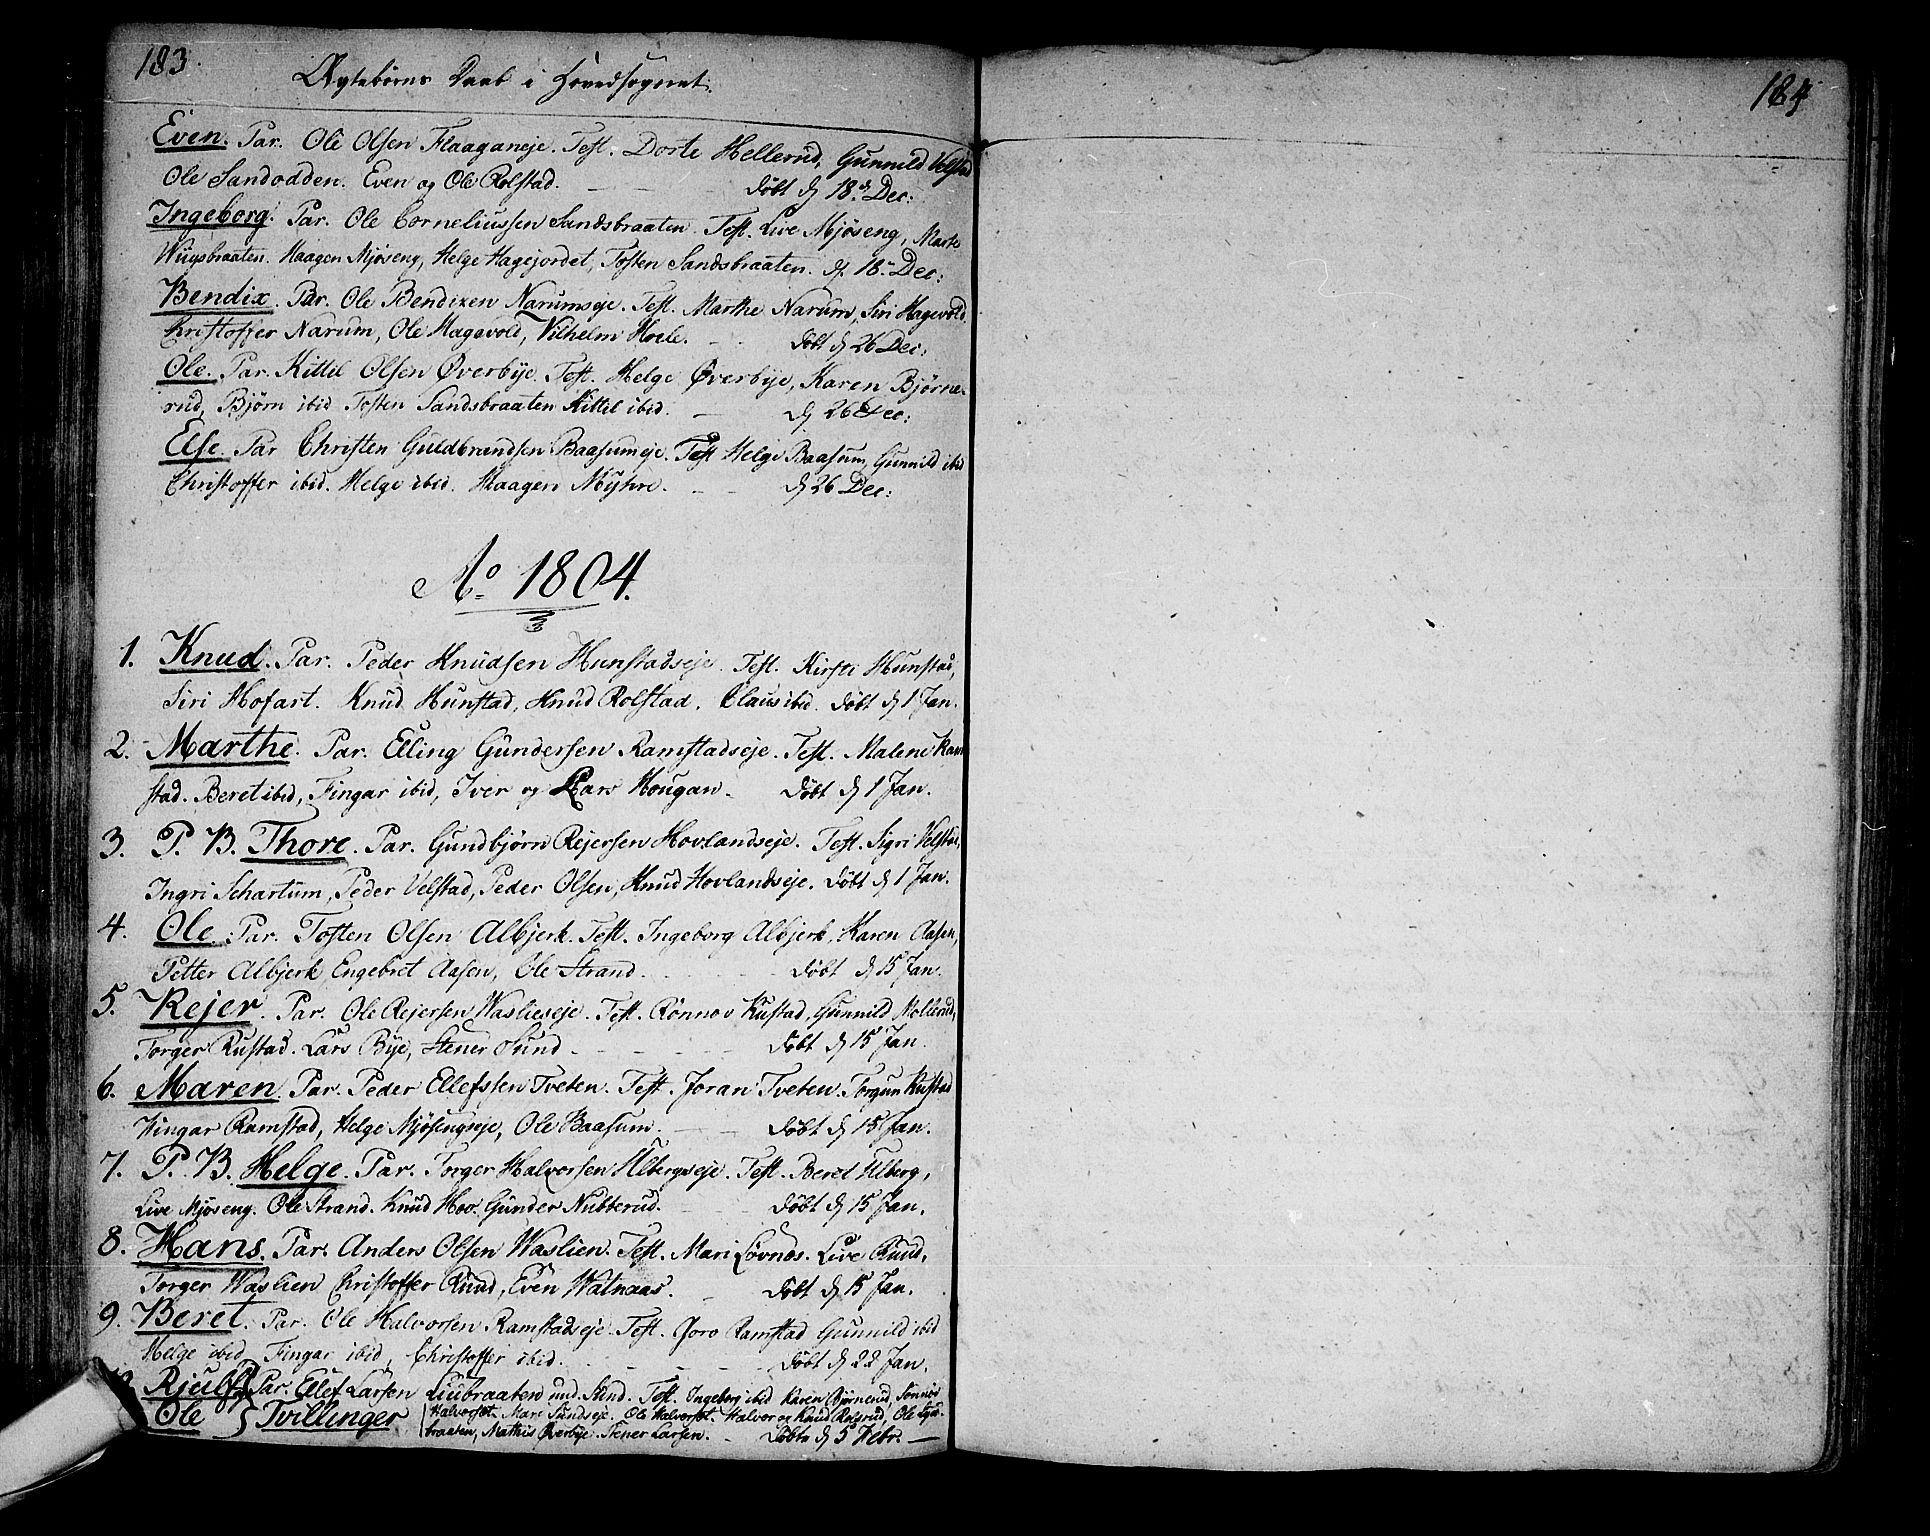 183.
Ægtebørns Daab i Hovedsognet.
184
Even. Par. Ole Olsen Flaaganeje. Test. Dorte Hellerud, Gunnild Velstad
Ole Sandodden. Even og Ole Rolstad. døbt d 18 Dec:
Ingeborg. Par. Ole Corneliussen Sandsbraaten. Test. Live Mjøseng, Marte
Haagen Mjøseng, Helge Hagejordet, Tosten Sandsbraaten. d. 18 Dec:
Bendix. Par. Ole Bendixen Narumseje. Test. Marthe Narum, Siri Hagevold.
Christoffer Narum, Ole Hagevold, Vilhelm Hvele. døbt d 26 Dec:
Ole. Par. Kittil Olsen Øverbye. Test. Helge Øverbye, Karen Bjørne-
rud, Bjørn ibid Tosten Sandsbraaten Kittil ibid. d 26 Dec:
Else. Par Christen Guldbrandsen Baasumeje. Test Helge Baasum, Gunnild ibid
Christoffer ibid. Helge ibid. Haagen Myhre. d 26 Dec:
Ao 1804.
1. Knud. Par. Peder Knudsen Hunstadseje. Test. Kirsti Hunstad,
Siri Hofart. Knud Hunstad, Knud Rolstad. Claus ibid. døbt d 1 Jan.
2. Marthe. Par. Elling Gundersen Ramstadseje. Test. Malene Ram
stad. Beret ibid, Fingar ibid, Iver og Lars Hougan. døbt d 1 Jan.
3. P. B. Thore. Par. Gundbjørn Rejersen Hovlandseje. Test. Sigri Velstad,
Ingri Schartum, Peder Velstad, Peder Olsen, Knud Hovlandseje. døbt d 1 Jan.
4. Ole. Par. Tosten Olsen Albjerk. Test. Ingeborg Albjerk, Karen Aasen,
Petter Albjerk, Engebret Aasen, Ole Strand. døbt d 15 Jan.
5. Rejer. Par. Ole Rejersen Waslieseje. Test. Rønnov Rustad, Gunnild Mollerud,
Torger Rustad. Lars Bye, Stener Sund. døbt d 15 Jan.
6. Maren. Par. Peder Ellefsten Tveten. Test. Joran Tveten. Torgun Rustad
Fingar Ramstad, Helge Mjøsengseje, Ole Baasum. døbt d 15 Jan.
7. P. B. Helge. Par. Torger Halvorsen Ulbergseje. Test. Beret Ulberg,
Live Mjøseng. Ole Strand. Knud Hov. Gunder Nubberud. døbt d 15 Jan.
8. Hans. Par. Anders Olsen Waslien. Test. Mari Løvnæs. Live Ruud,
Torger Waslien Christoffer Ruud, Even Watnaas. døbt d 15 Jan.
9. Beret. Par. Ole Halvorsen Ramstadseje. Test. Goro Ramstad Gunnild ibid
Helge ibid, Fingar ibid, Christoffer ibid. døbt d 22 Jan.
Rjulf Par. Ellef Larsen Liubraaten und. Sund. Test. Ingeborg ibid Karen Bjørnerud,
Ole } Tvillinger Mari Sundseje. Ole Halvorset. Halvor og Knud Rolsrud, Ole
braaten, Mathis Øverbye. Stener Larsen. døbte d 5 Febr.